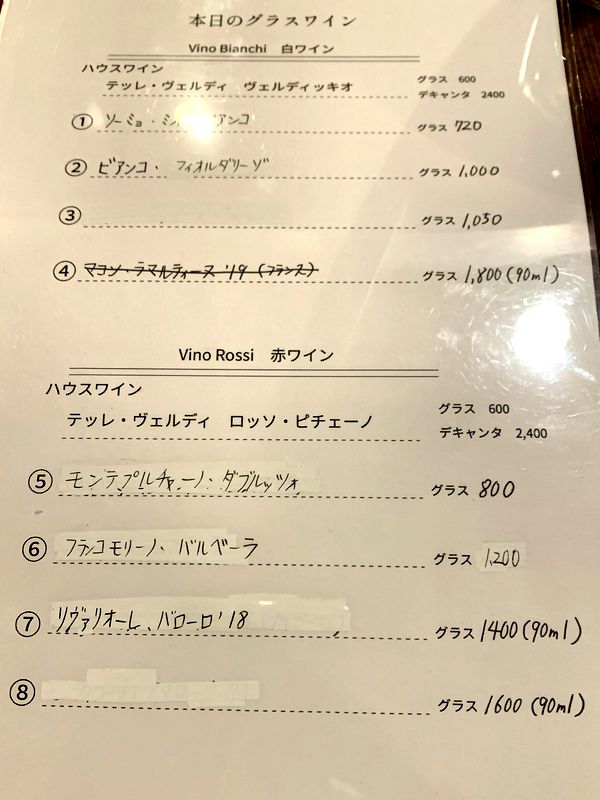 本日のグラスワイン
Vino Bianchi 白ワイン
ハウスワイン
テッレ・ヴェルディ ヴェルディッキオ
グラス 600
デキャンタ 2400
① ソーミョ・ アンコ グラス 720
② ビアンコ・ フィオルダリーゾ グラス 1,000
③ グラス 1,050
④ マコン・ラマルティーヌ '19 (フランス) グラス 1,800 (90ml)
Vino Rossi 赤ワイン
ハウスワイン
テッレ・ヴェルディ ロッソ・ピチェーノ
グラス 600
デキャンタ 2,400
⑤ モンテプルチャーノ・ダブルッツォ グラス 800
⑥ フランコモリーノ・ バルベーラ グラス 1,200
⑦ リヴァリオーレ、バローロ '18 グラス 1400 (90ml)
⑧ グラス 1600 (90ml)